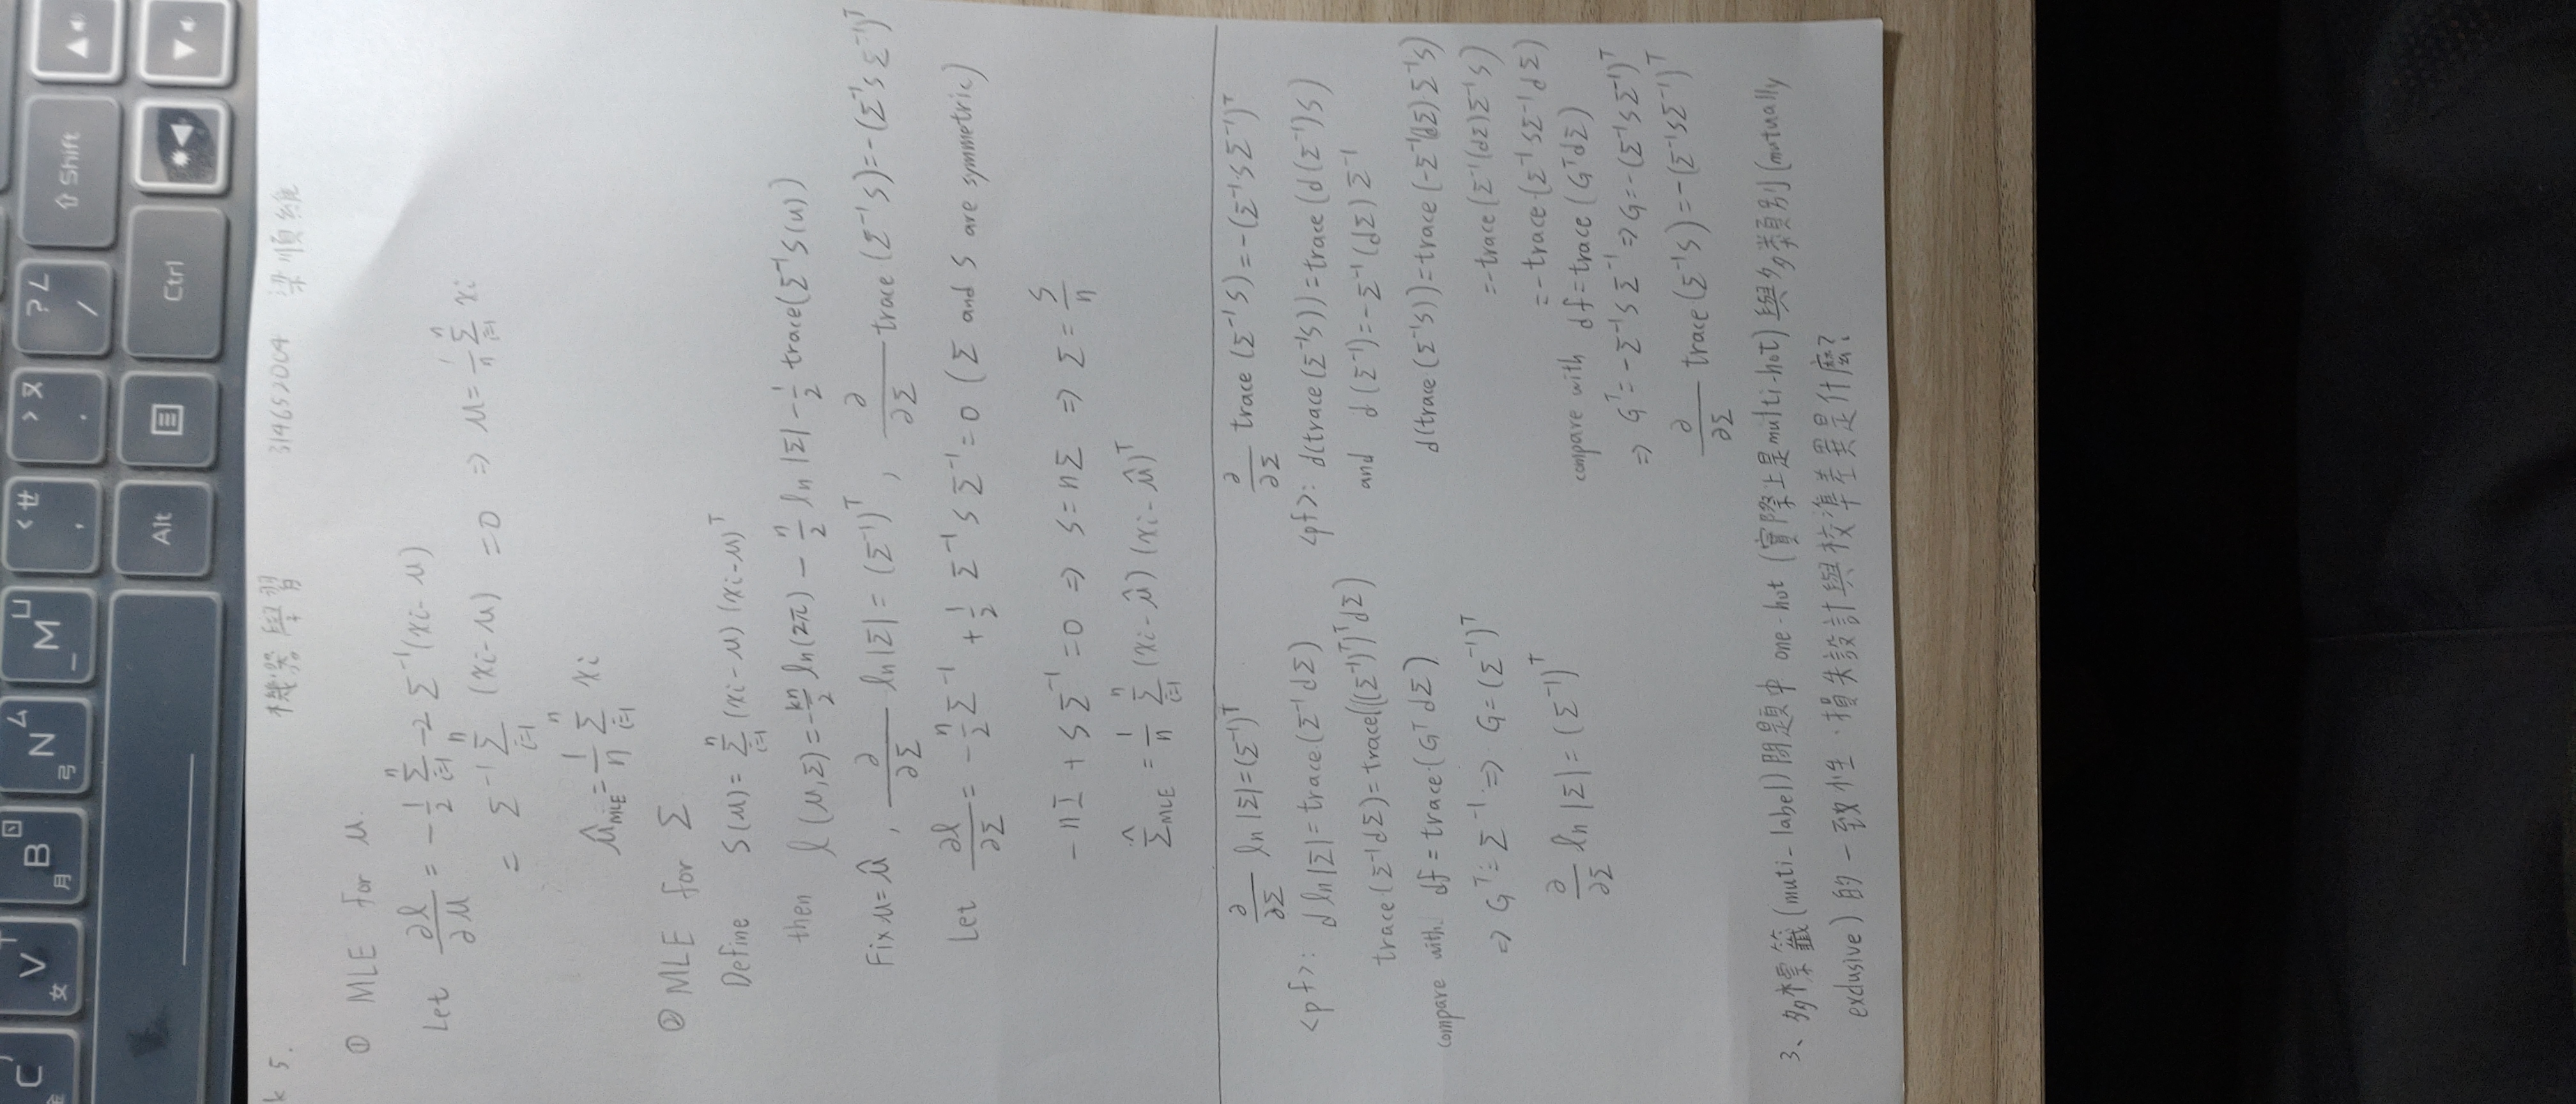 C V B N M < , > . ? / ⇧ Shift ▲
金 女 月 弓 一 ㄒ ㄖ ㄙ ㄩ ㄝ ㄡ ㄥ
Alt Ctrl ▼
k 5. 機器學習 314652004 梁順維
① MLE for μ.
Let ∂ℓ/∂μ = -1/2 Σ_{i=1}^{n} -2 Σ⁻¹(xi-μ)
= Σ⁻¹ Σ_{i=1}^{n} (xi-μ) = 0 ⇒ μ = 1/n Σ_{i=1}^{n} xi
μ̂_MLE = 1/n Σ_{i=1}^{n} xi
② MLE for Σ
Define S(μ) = Σ_{i=1}^{n} (xi-μ)(xi-μ)ᵀ
then ℓ(μ,Σ) = -kn/2 ln(2π) - n/2 ln|Σ| - 1/2 trace(Σ⁻¹S(μ))
Fix μ=μ̂, ∂/∂Σ ln|Σ| = (Σ⁻¹)ᵀ, ∂/∂Σ trace(Σ⁻¹S) = -(Σ⁻¹SΣ⁻¹)ᵀ
Let ∂ℓ/∂Σ = -n/2 Σ⁻¹ + 1/2 Σ⁻¹SΣ⁻¹ = 0 (Σ and S are symmetric)
-nI + SΣ⁻¹ = 0 ⇒ S = nΣ ⇒ Σ = S/n
Σ̂_MLE = 1/n Σ_{i=1}^{n} (xi-μ̂)(xi-μ̂)ᵀ
∂/∂Σ ln|Σ| = (Σ⁻¹)ᵀ
<pf>: d ln|Σ| = trace(Σ⁻¹dΣ)
trace(Σ⁻¹dΣ) = trace(((Σ⁻¹)ᵀ)ᵀdΣ)
compare with df = trace(GᵀdΣ)
⇒ Gᵀ = Σ⁻¹ ⇒ G = (Σ⁻¹)ᵀ
∂/∂Σ ln|Σ| = (Σ⁻¹)ᵀ
∂/∂Σ trace(Σ⁻¹S) = -(Σ⁻¹SΣ⁻¹)ᵀ
<pf>: d(trace(Σ⁻¹S)) = trace(d(Σ⁻¹)S)
and d(Σ⁻¹) = -Σ⁻¹(dΣ)Σ⁻¹
d(trace(Σ⁻¹S)) = trace(-Σ⁻¹(dΣ)·Σ⁻¹S)
= -trace(Σ⁻¹(dΣ)Σ⁻¹S)
= -trace(Σ⁻¹SΣ⁻¹dΣ)
compare with df = trace(GᵀdΣ)
⇒ Gᵀ = -Σ⁻¹SΣ⁻¹ ⇒ G = -(Σ⁻¹SΣ⁻¹)ᵀ
∂/∂Σ trace(Σ⁻¹S) = -(Σ⁻¹SΣ⁻¹)ᵀ
3、多標籤(muti-label)問題中 one-hot (實際上是multi-hot)與多類別(mutually
exclusive)的一致性、損失設計與校準差異是什麼?